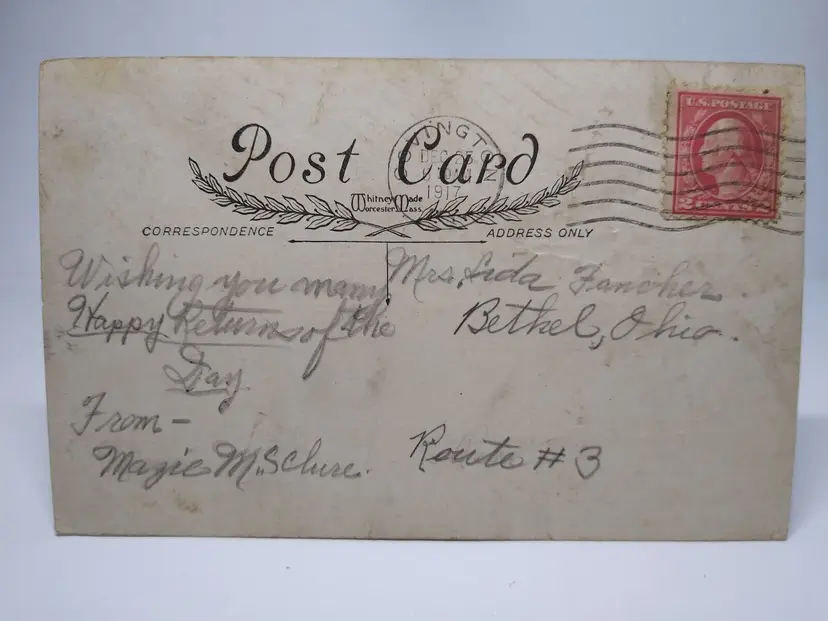 Post Card
Whitney Made
Worcester Mass.
U.S. POSTAGE
INGT
DEC
1917
CORRESPONDENCE
ADDRESS ONLY
Wishing you many
Happy Returns of the
Day
From-
Mazie McClure.
Mrs. Lida Fancher
Bethel, Ohio.
Route # 3